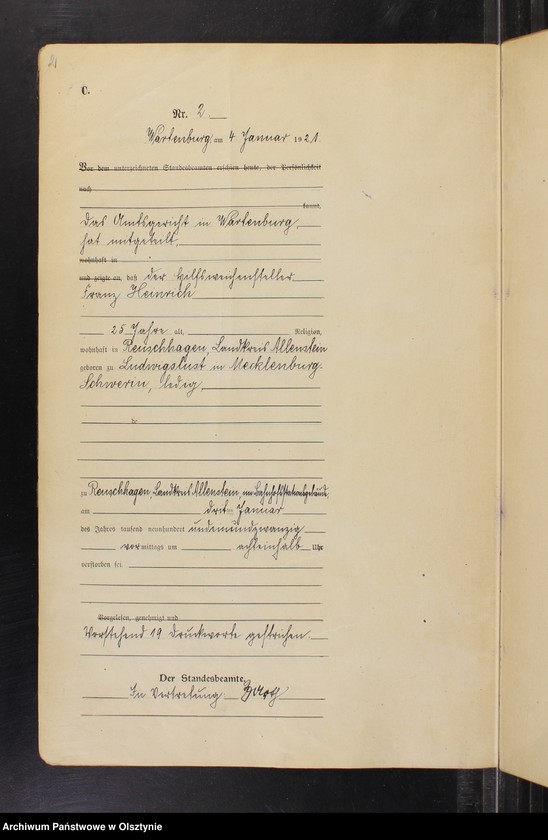 2
C.
Nr. 2.
Wartenburg am 4 Januar 1921.
Vor dem unterzeichneten Standesbeamten erschien heute, der Persönlichkeit
nach
kannt,
Das Amtsgericht in Wartenburg
hat mitgeteilt
wohnhaft in
und zeigte an, daß der Hilfsweichensteller
Franz Heinrich
25 Jahre alt, Religion,
wohnhaft in Reuschhagen, Landkreis Allenstein
geboren zu Ludwigslust in Mecklenburg-
Schwerin, ledig
de
zu Reuschhagen, Landkreis Allenstein, im Bahnhofsstationsgebäude
am drit ten Januar
des Jahres tausend neunhundert undeinundzwanzig
vormittags um achteinhalb Uhr
verstorben sei.
Vorgelesen, genehmigt und
Vorstehend 19 Druckworte gestrichen.
Der Standesbeamte.
In Vertretung
Archiwum Państwowe w Olsztynie